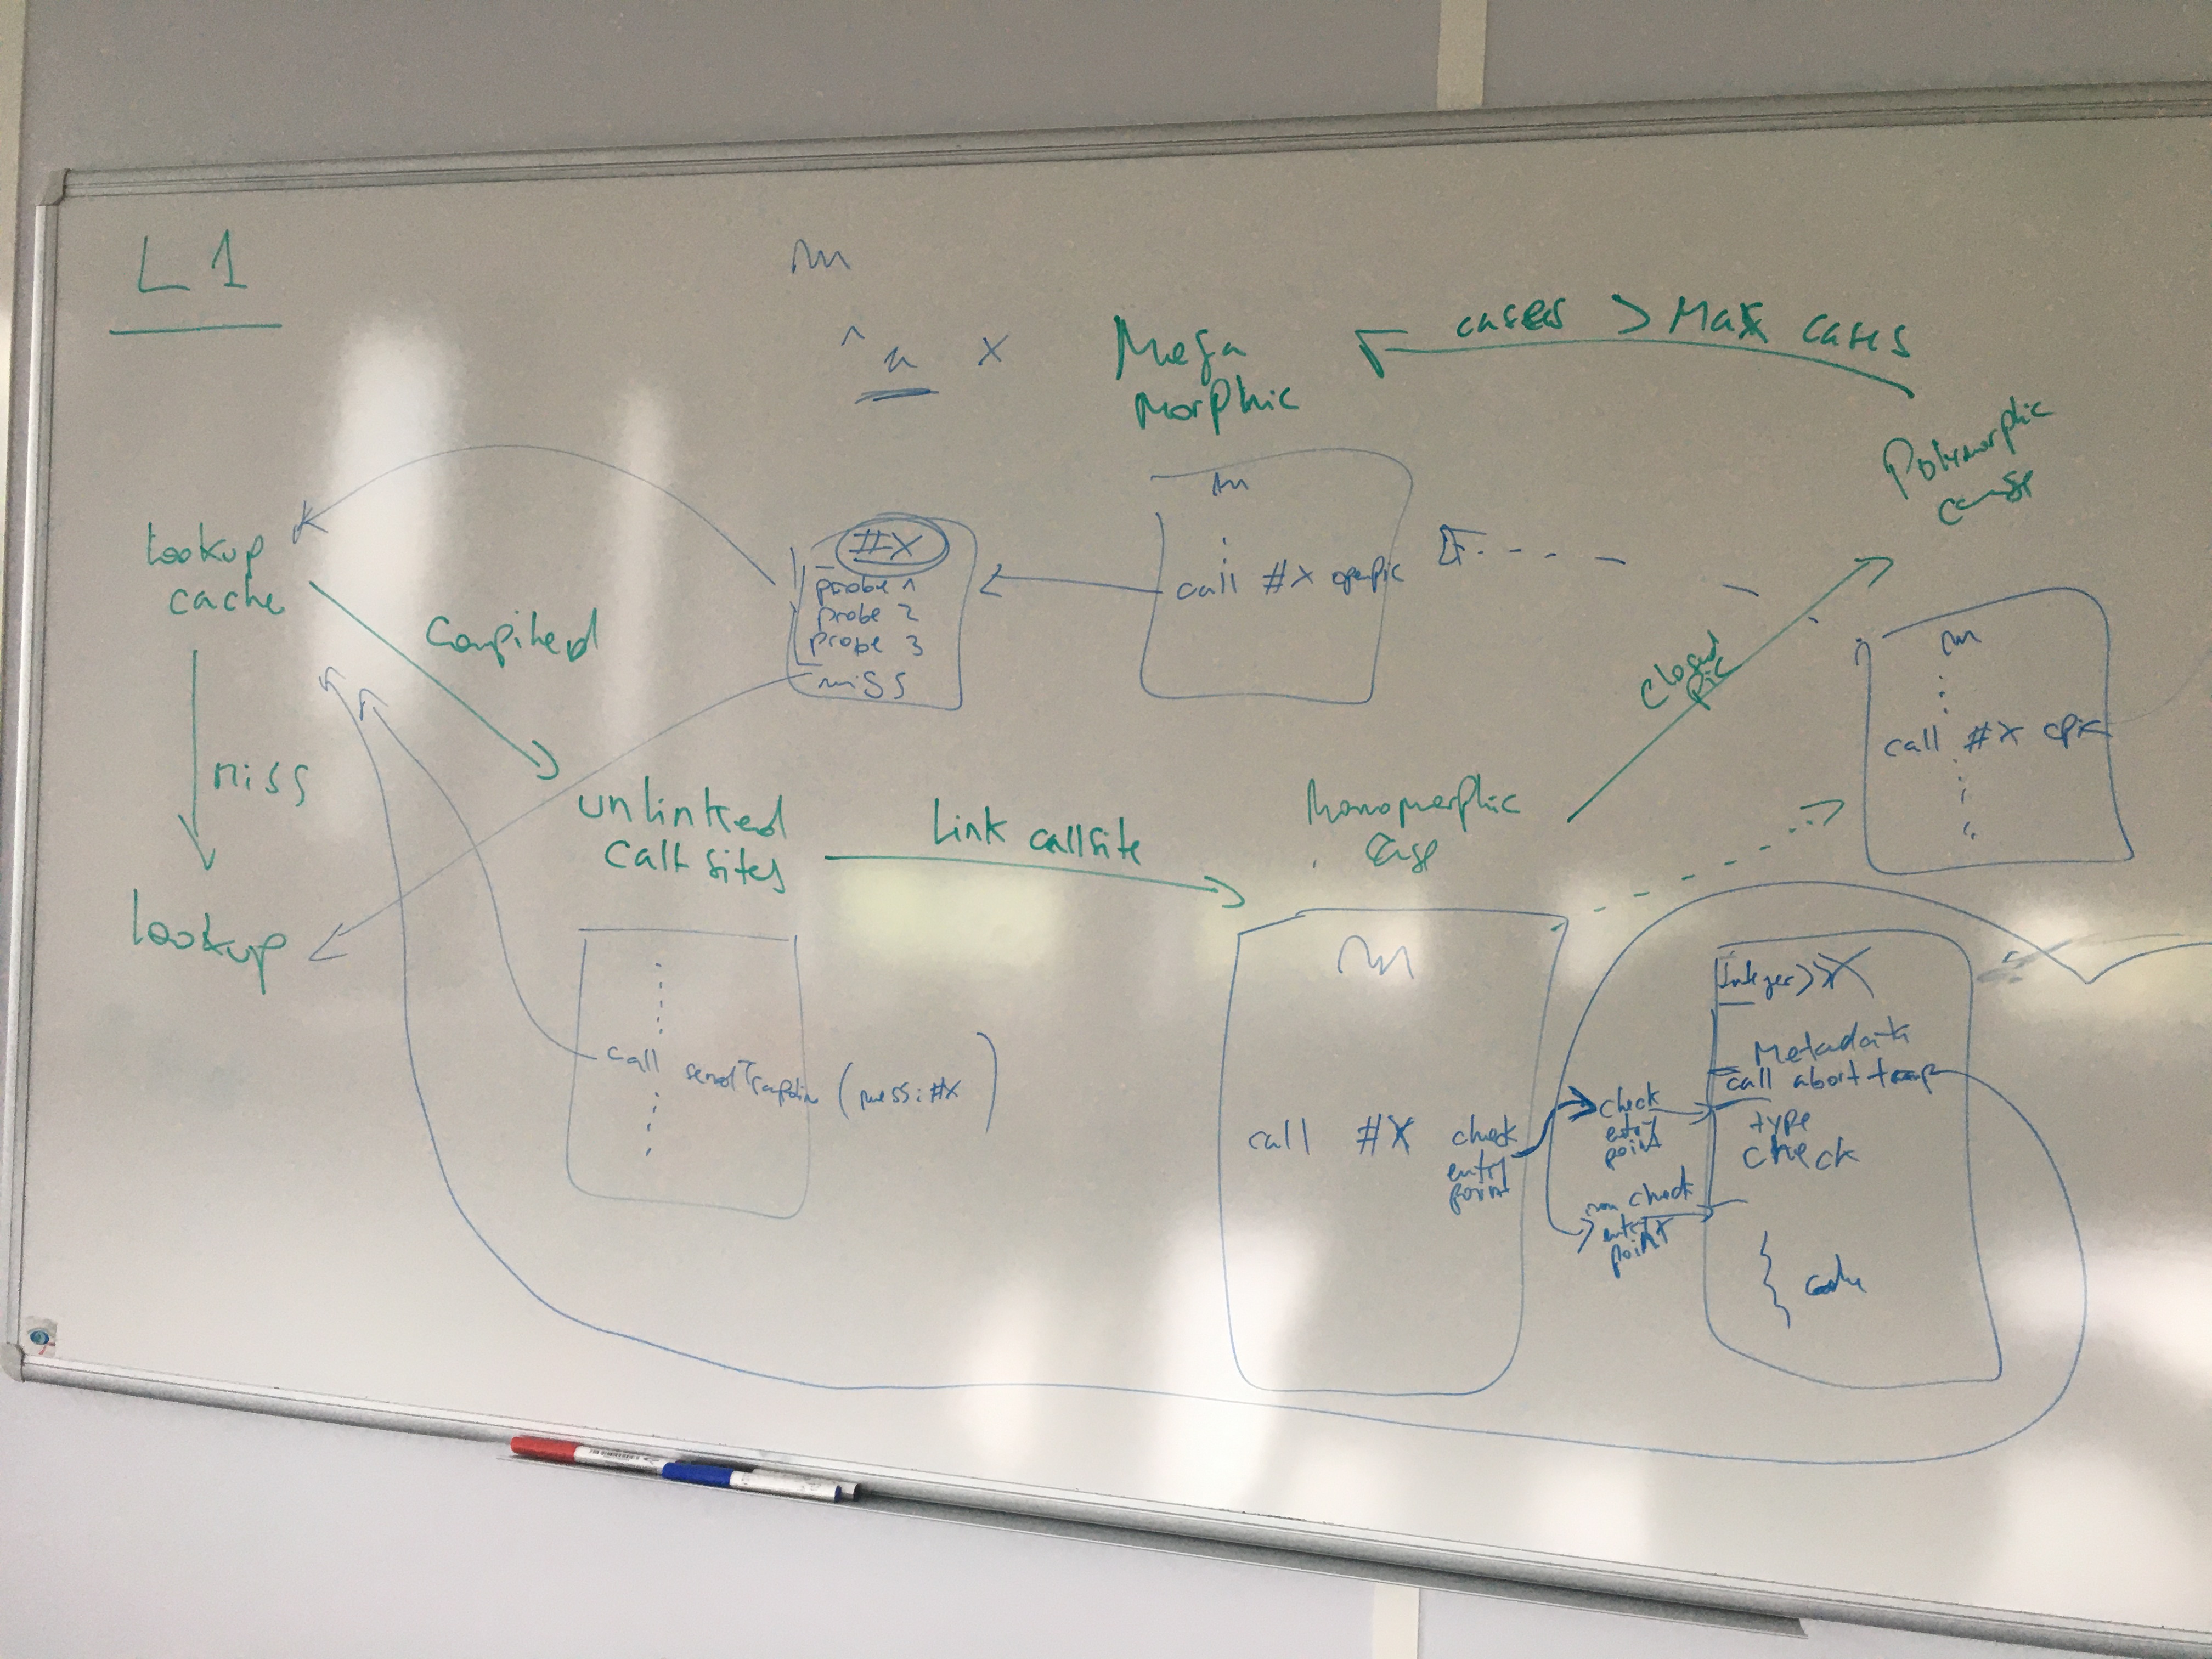 L1
m
^ a x
Mega
Morphic
cases > Max cases
Polymorphic
case
Lookup
cache
Compiled
miss
lookup
#X
probe 1
probe 2
probe 3
miss
m
call #X openpic
closed
pic
m
call #X cpic
unlinked
Call sites
Link callsite
Monomorphic
Case
call sendTrampolin (mess: #X)
m
call #X check
entry
point
check
entry
point
non check
entry
point
Integer>>X
Metadata
call abort tramp
type
check
code